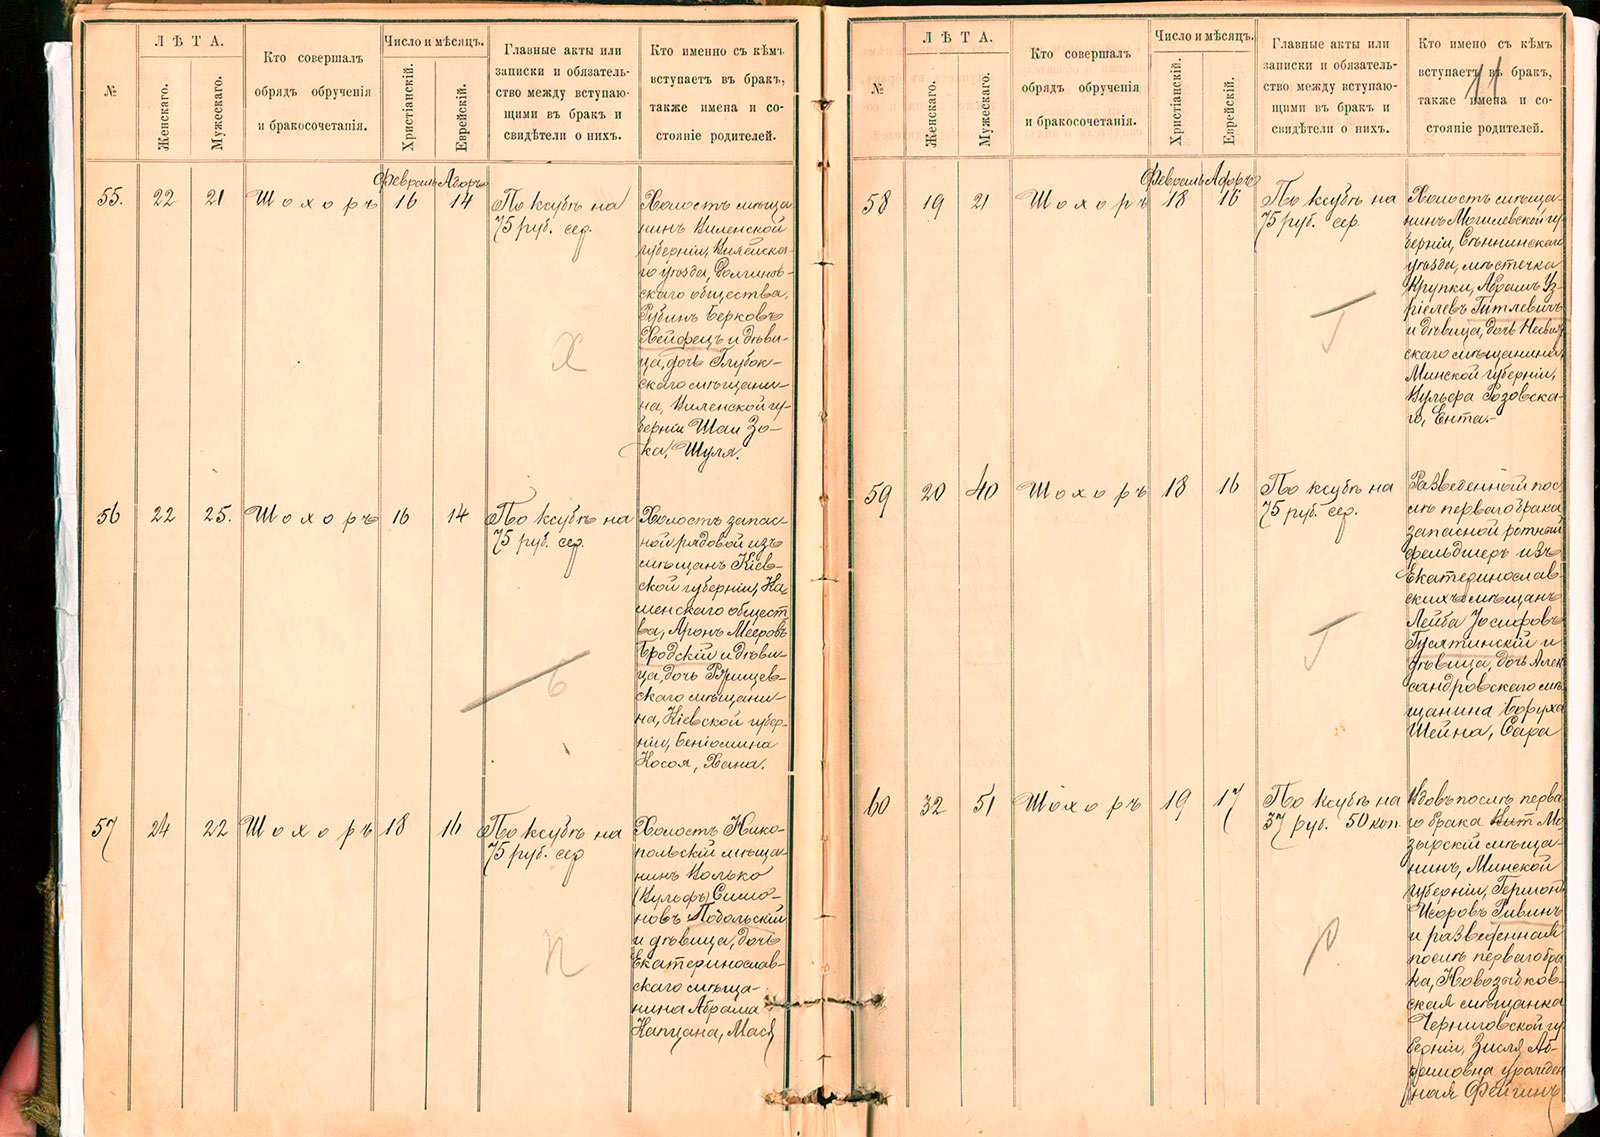 №
ЛѢТА.
Женскаго.
Мужескаго.
Кто совершалъ
обрядъ обрученія
и бракосочетанія.
Число и мѣсяцъ.
Христіанскій.
Еврейскій.
Главные акты или
записки и обязатель-
ство между вступаю-
щими въ бракъ и
свидѣтели о нихъ.
Кто именно съ кѣмъ
вступаетъ въ бракъ,
также имена и со-
стояніе родителей.
Февраль Адоръ
55. 22 21 Шохоръ 16 14
По ксубѣ на
75 руб. сер.
Холостъ мѣща
нинъ Виленской
губерніи, Вилейска-
го уѣзда, Долгинов-
скаго общества,
Рубинъ Берковъ
Хейфецъ и дѣви-
ца, дочь Глубок-
скаго мѣщани-
на, Виленской гу-
берніи Шаи Зо-
ка, Шуля.
Х
56 22 25. Шохоръ 16 14
По ксубѣ на
75 руб. сер.
Холостъ запас-
ной рядовой изъ
мѣщанъ Кіев-
ской губерніи, Ка-
менскаго общест
ва, Аронъ Мееровъ
Бродскій и дѣви-
ца, дочь Ржищев-
скаго мѣщани-
на, Кіевской губер-
ніи, Беніомина
Косоя, Хана.
Б
57 24 22 Шохоръ 18 16
По ксубѣ на
75 руб. сер
Холостъ Нико-
польскій мѣща-
нинъ Волько
(Вульфъ) Симо-
новъ Подольскій
и дѣвица, дочь
Екатеринослав-
скаго мѣща-
нина Абрама
Капцана, Мася
П
11
№
ЛѢТА.
Женскаго.
Мужескаго.
Кто совершалъ
обрядъ обрученія
и бракосочетанія.
Число и мѣсяцъ.
Христіанскій.
Еврейскій.
Главные акты или
записки и обязатель-
ство между вступаю-
щими въ бракъ и
свидѣтели о нихъ.
Кто имено съ кѣмъ
вступаетъ въ бракъ,
также имена и со-
стояніе родителей.
Февраль Адоръ
58 19 21 Шохоръ 18 16
По ксубѣ на
75 руб. сер.
Холостъ мѣща-
нинъ Могилевской гу-
берніи, Сѣннинскаго
уѣзда, мѣстечка
Крупки, Абрамъ Уз-
ріелевъ Гитлевичъ
и дѣвица, дочь Несвиж-
скаго мѣщанина,
Минской губерніи,
Вульфа Розовска-
го, Ента.-
Г
59 20 40 Шохоръ 18 16
По ксубѣ на
75 руб. сер.
Разведенный пос-
лѣ перваго брака
запасной ротный
фельдшеръ изъ
Екатеринослав-
скихъ мѣщанъ
Лейба Іосифовъ
Гусятинскій и
дѣвица, дочь Алек
сандровскаго мѣ-
щанина Боруха
Шейна, Сара
Г
60 32 51 Шохоръ 19 17
По ксубѣ на
37 руб. 50 коп.
Вдовъ послѣ перва-
го брака Мо-
зырскій мѣща-
нинъ, Минской
губерніи,
Исоровъ Ривинъ
и разведенная
послѣ перваго бра
ка, Новозыбков-
ская мѣщанка
Черниговской гу-
берніи, Зисля Аб-
рамовна урожден
ная Фейгинъ
Р